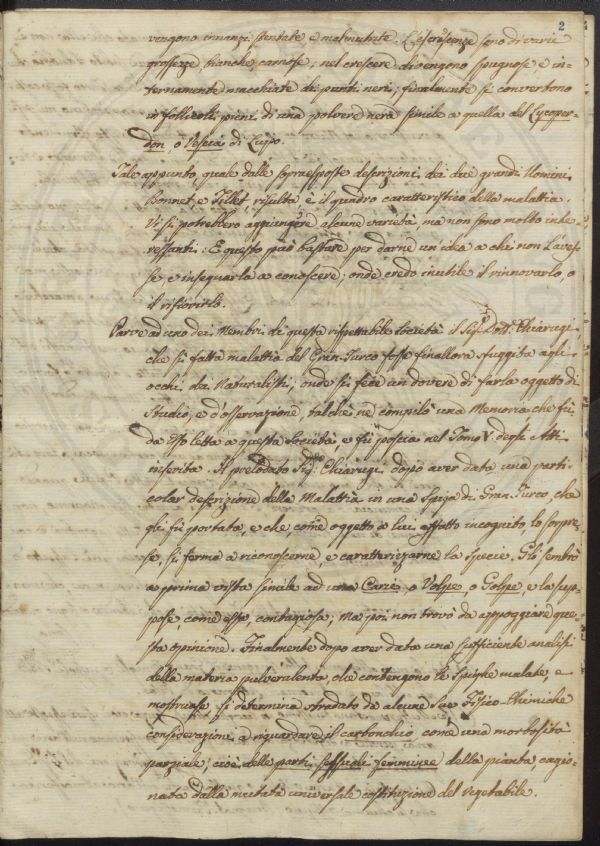 2
vengono innanzi stentate e malnutrite. L'escrescenze sono di varie
grossezze, bianche, carnose; nel crescere divengono spugnose, e in-
ternamente macchiate di punti neri; finalmente si convertono
in follicoli pieni di una polvere nera simile a quella del Lycoper-
don, o Vescia di Lupo.
Tale appunto, quale dalle sopraesposte descrizioni dei due grandi Uomini
Bonnet, e Tillet, risulta è il quadro caratteristico della malattia.
Vi si potrebbero aggiungere alcune varietà ma non sono molto inte-
ressanti: E questo può bastare per darne un idea a chi non l'aves-
se, e insegnarla a conoscere; onde credo inutile il rinnovarlo, o
il rifiorirlo.
Parve ad uno dei Membri di questa rispettabile Società il Sig.re Dott. Chiarugi
che sì fatta malattia del Gran-Turco fosse finallora sfuggita agli
occhi dei Naturalisti, onde si fece un dovere di farla oggetto di
Studio, e d'osservazione talchè ne compilò una Memoria che fù
da esso letta a questa Società e fù poscia nel Tomo V. degli Atti
inserita. Il prelodato Sig.re Chiarugi dopo aver data una parti-
colar descrizione della Malattia in una Spiga di Gran-Turco, che
gli fù portata, e che, come oggetto a lui affatto incognito, lo sorpre-
se, si fermò a riconoscerne, e caratterizarne la specie. Gli sembrò
a prima vista simile ad una Carie, o Volpe, o Golpe, e la sup-
pose, come essa, contagiosa; ma poi non trovò da appoggiare que-
sta opinione. Finalmente dopo aver data una sufficiente analisi
della materia pulverulenta, che contengono le Spighe malate, e
mostruose, si determina stradato da alcune sue Fisico-Chimiche
considerazioni a riguardare il carbonchio, come una morbosità
parziale, cioè, delle parti sessuali femminee della pianta cagio-
nata dalla mutata universale costituzione del vegetabile.